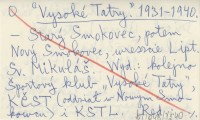 Q "Vysoké Tatry" 1931-1940.
- Starý Smokovec, potem
Nový Smokovec, wreszcie Lipt.
Sv. Mikuláš. Wyd.: kolejno
Športový klub „Vysoké Tatry",
KČST (oddział w Novým Smo-
kovcu) i KSTL.